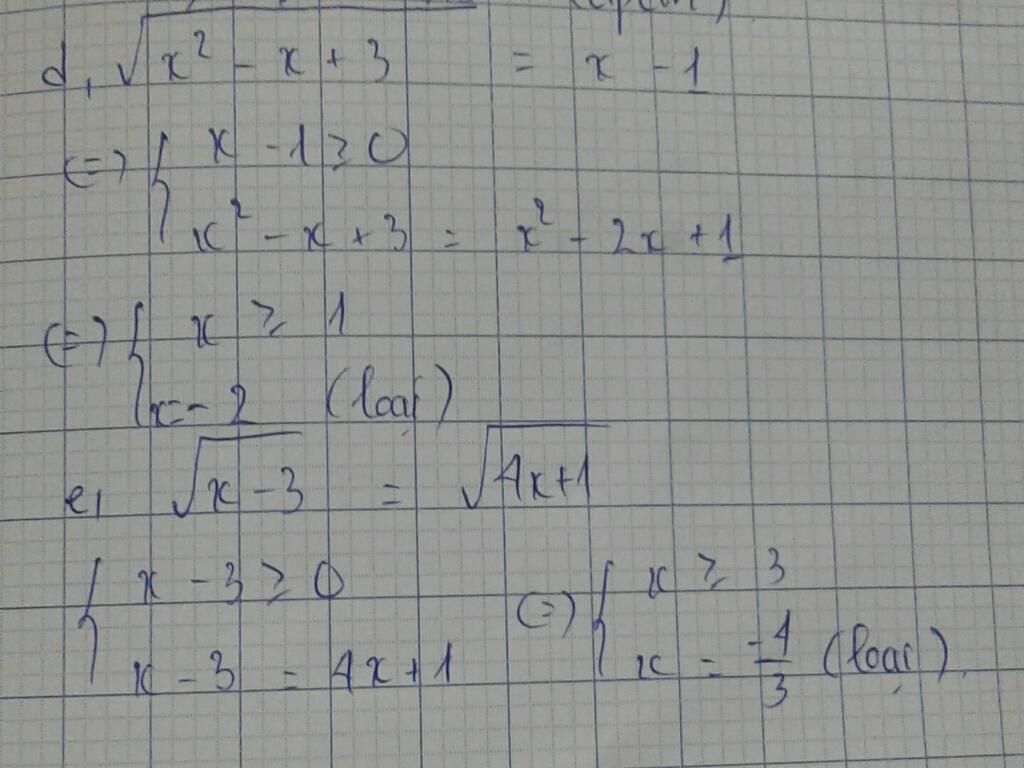 d, √(x² - x + 3) = x - 1
(=) { x - 1 ≥ 0
x² - x + 3 = x² - 2x + 1
(=) { x ≥ 1
x = - 2 (loại)
e, √(x - 3) = √(4x+1)
{ x - 3 ≥ 0 (=) { x ≥ 3
x - 3 = 4x + 1 x = -4/3 (loại).